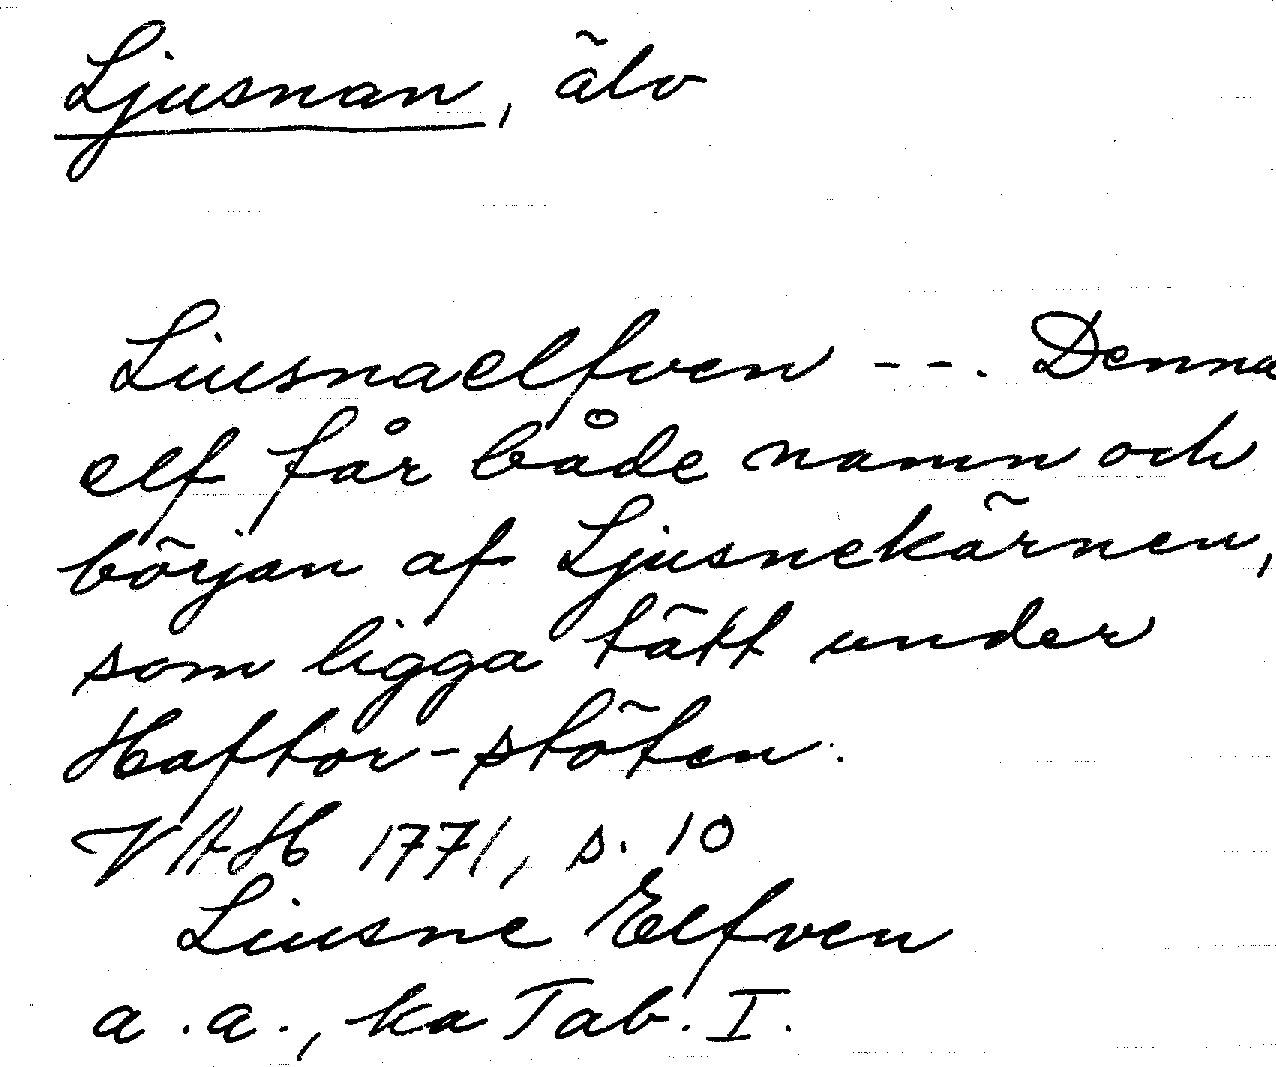 Ljusnan, älv
Liusnaelfven - - . Denna
elf får både namn och
början af Ljusnekärnen,
som ligga tätt under
Haftor-stöten.
VAH 1771, s. 10
Liusne Elfven
a.a., ka Tab. I.